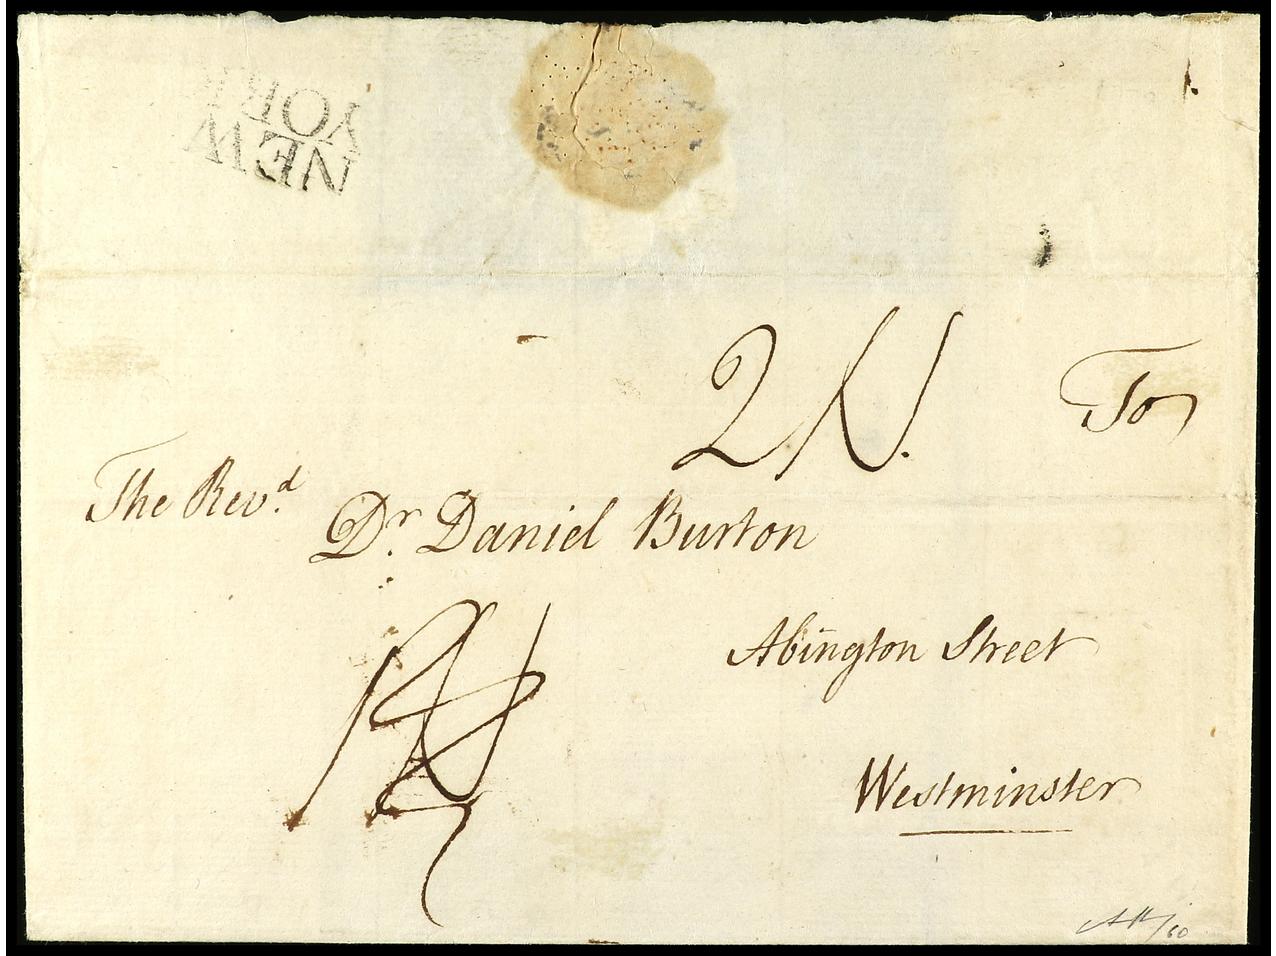 NEW
YORK
2N.
To
The Rev.d
Dr. Daniel Burton
Abington Street
Westminster